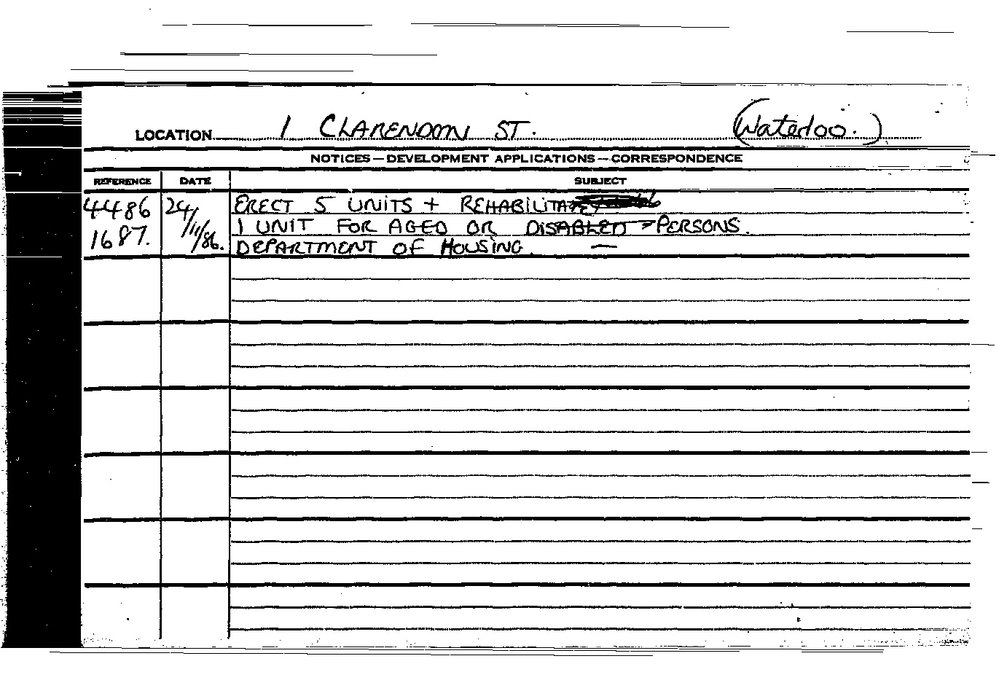 LOCATION 1 CLARENDON ST. (Waterloo.)
NOTICES—DEVELOPMENT APPLICATIONS—CORRESPONDENCE
REFERENCE DATE SUBJECT
4486 24/ ERECT 5 UNITS + REHABILITATE
1687. /11/86. 1 UNIT FOR AGED OR DISABLED PERSONS.
DEPARTMENT OF HOUSING. —